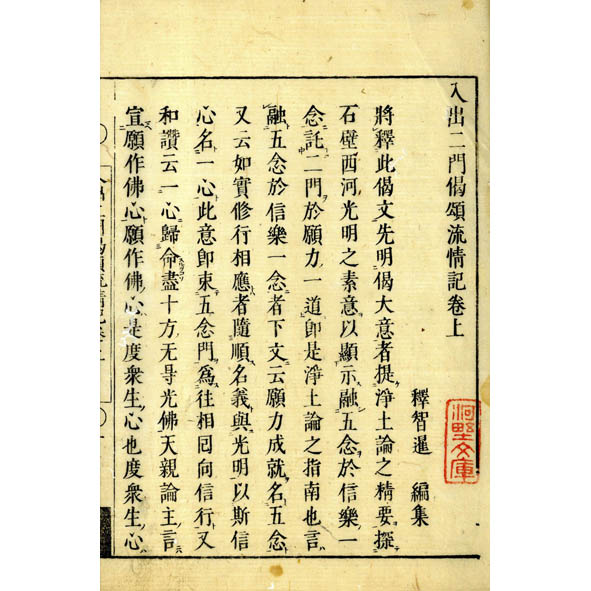 入出二門偈頌流情記卷上
釋智暹　編集
河野文庫
將釋此偈文先明偈大意者提淨土論之精要探
石壁西河光明之素意以顯示融五念於信樂一
念託二門於願力一道卽是淨土論之指南也言
融五念於信樂一念者下文云願力成就名五念
又云如實修行相應者隨順名義與光明以斯信
心名一心此意卽束五念門爲往相囘向信行又
和讚云一心歸命盡十方无㝵光佛天親論主言
宣願作佛心願作佛心是度衆生心也度衆生心